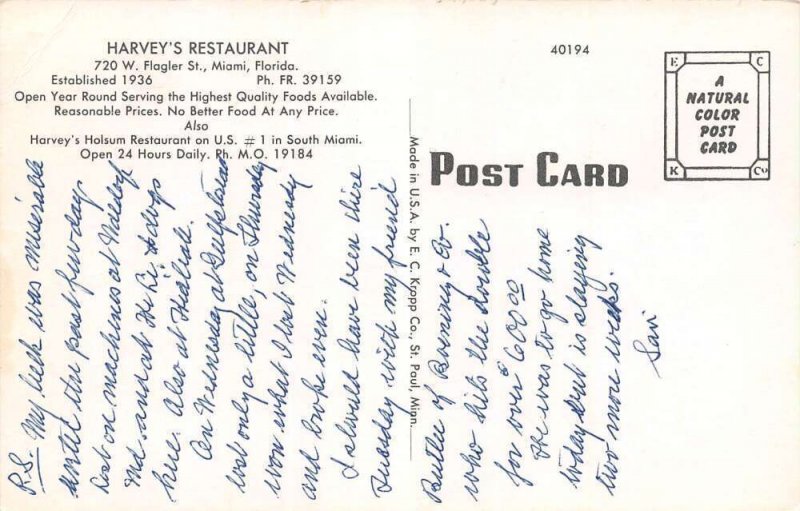 HARVEY'S RESTAURANT
720 W. Flagler St., Miami, Florida.
Established 1936 Ph. FR. 39159
Open Year Round Serving the Highest Quality Foods Available.
Reasonable Prices. No Better Food At Any Price.
Also
Harvey's Holsum Restaurant on U.S. # 1 in South Miami.
Open 24 Hours Daily. Ph. M.O. 19184
40194
E C
K Co
A
NATURAL
COLOR
POST
CARD
POST CARD
Made in U.S.A. by E. C. Kropp Co., St. Paul, Minn.
P.S. My luck was miserable
until the past few days.
Lost on machines at
Md. and at the Hi. & dogs
here. Also at Hialeah.
On Wednesday at Gulfstream
lost only a little, on Thursday
won what I lost Wednesday
and broke even.
I should have been there
Tuesday with my friend
Butler of & Co.
who hits the double
for over $600.00
He was to go home
today but is staying
two more weeks.